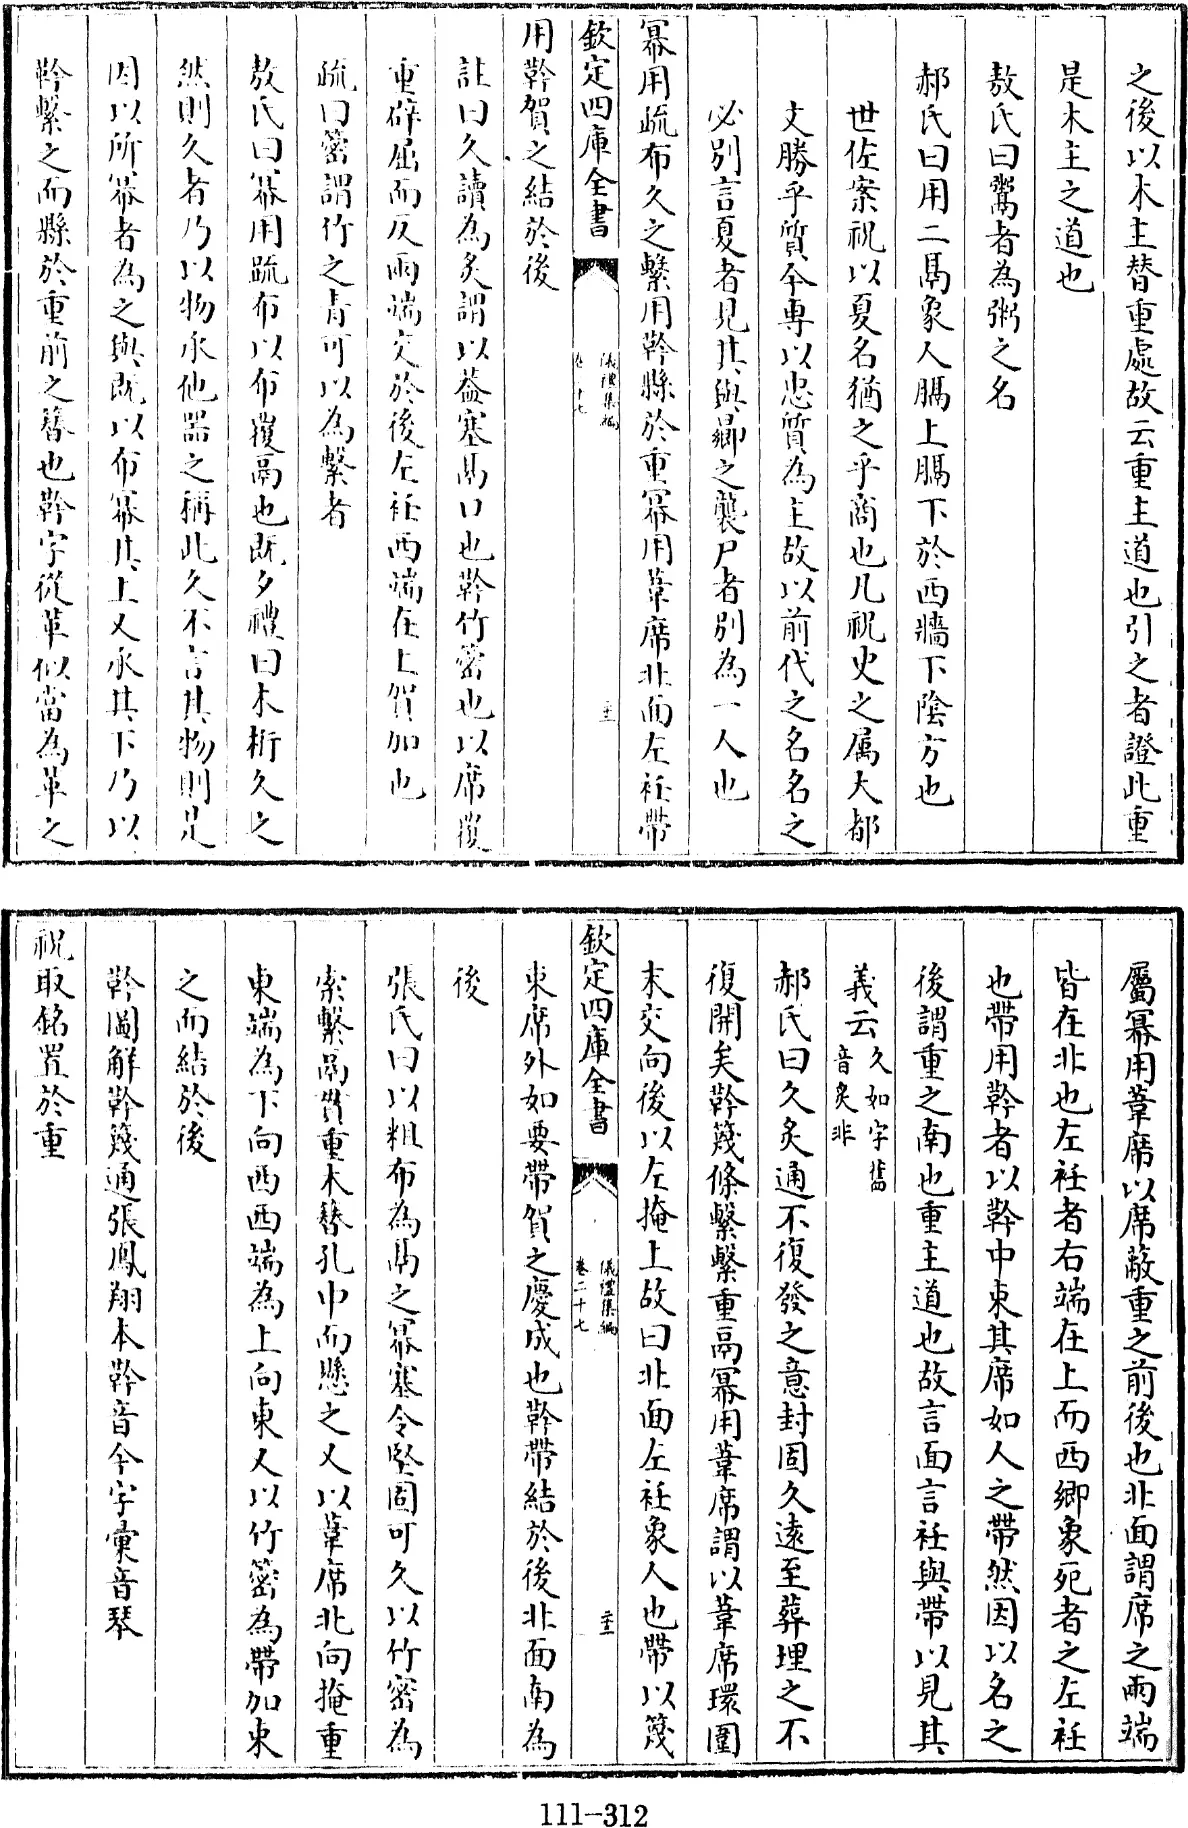 之後以木主替重處故云重主道也引之者證此重
是木主之道也
敖氏曰鬻者為粥之名
郝氏曰用二鬲象人膈上膈下於西牆下陰方也
世佐案祝以夏名猶之乎商也凡祝史之属大都
文勝乎質今專以忠質為主故以前代之名名之
必别言夏者見其與曏之襲尸者别為一人也
冪用疏布久之繫用靲縣於重冪用葦席北面左衽帶
欽定四庫全書
儀禮集編
卷二十七
用靲賀之結於後
註曰久讀為灸謂以葢塞鬲口也靲竹䈼也以席覆
重辟屈而反兩端交於後左衽西端在上賀加也
疏曰䈼謂竹之青可以為繫者
敖氏曰冪用疏布以布覆鬲也既夕禮曰木桁久之
然則久者乃以物承他器之稱此久不言其物則是
因以所冪者為之與既以布冪其上又承其下乃以
靲繫之而縣於重前之簪也靲字從革似當為革之
屬冪用葦席以席蔽重之前後也北面謂席之兩端
皆在北也左衽者右端在上而西鄉象死者之左衽
也帶用靲者以靲中束其席如人之帶然因以名之
後謂重之南也重主道也故言面言衽與帶以見其
義云久如字舊
音灸非
郝氏曰久灸通不復發之意封固久遠至葬埋之不
復開矣靲篾條繫繫重鬲冪用葦席謂以葦席環圍
末交向後以左掩上故曰北面左衽象人也帶以篾
欽定四庫全書
儀禮集編
卷二十七
束席外如要帶賀之慶成也靲帶結於後北面南為
後
張氏曰以粗布為鬲之冪塞令堅固可久以竹䈼為
索繫鬲貫重木簪孔中而懸之又以葦席北向掩重
東端為下向西西端為上向東又以竹䈼為帶加束
之而結於後
靲圖解靲篾通張鳳翔本靲音今字彚音琴
祝取銘置於重
111-312